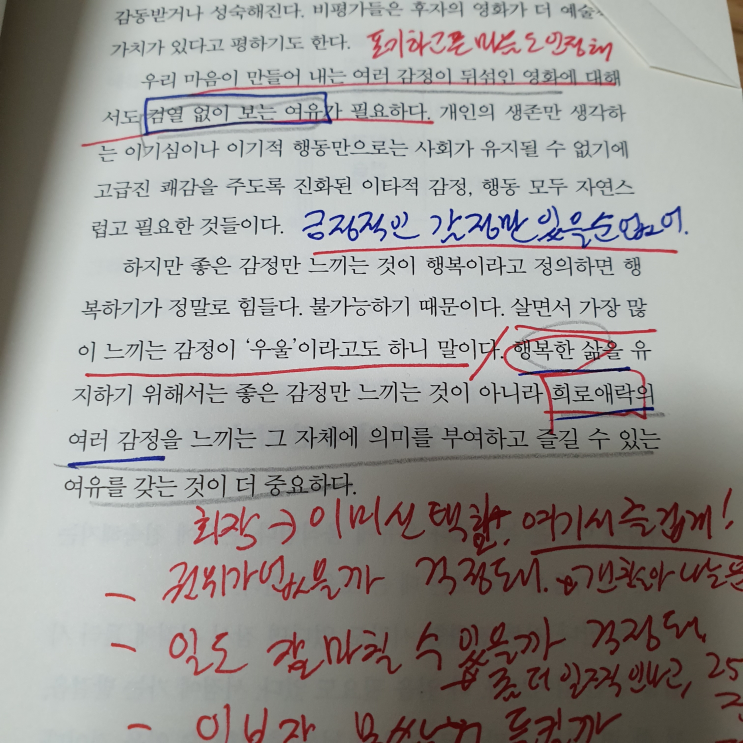 감동받거나 성숙해진다. 비평가들은 후자의 영화가 더 예술
가치가 있다고 평하기도 한다. 포기하고픈 마음도 인정해
우리 마음이 만들어 내는 여러 감정이 뒤섞인 영화에 대해
서도 검열 없이 보는 여유가 필요하다. 개인의 생존만 생각하
는 이기심이나 이기적 행동만으로는 사회가 유지될 수 없기에
고급진 쾌감을 주도록 진화된 이타적 감정, 행동 모두 자연스
럽고 필요한 것들이다. 긍정적인 감정만 있을순 없어.
하지만 좋은 감정만 느끼는 것이 행복이라고 정의하면 행
복하기가 정말로 힘들다. 불가능하기 때문이다. 살면서 가장 많
이 느끼는 감정이 '우울'이라고도 하니 말이다. 행복한 삶을 유
지하기 위해서는 좋은 감정만 느끼는 것이 아니라 희로애락의
여러 감정을 느끼는 그 자체에 의미를 부여하고 즐길 수 있는
여유를 갖는 것이 더 중요하다.
회장 → 이미 선택함. 여기서 즐겁게!
- 권위가 없을까 걱정돼. 괜찮아 나는
- 일도 잘 마칠 수 있을까 걱정돼.
좀 더 일조적인 나고, 25